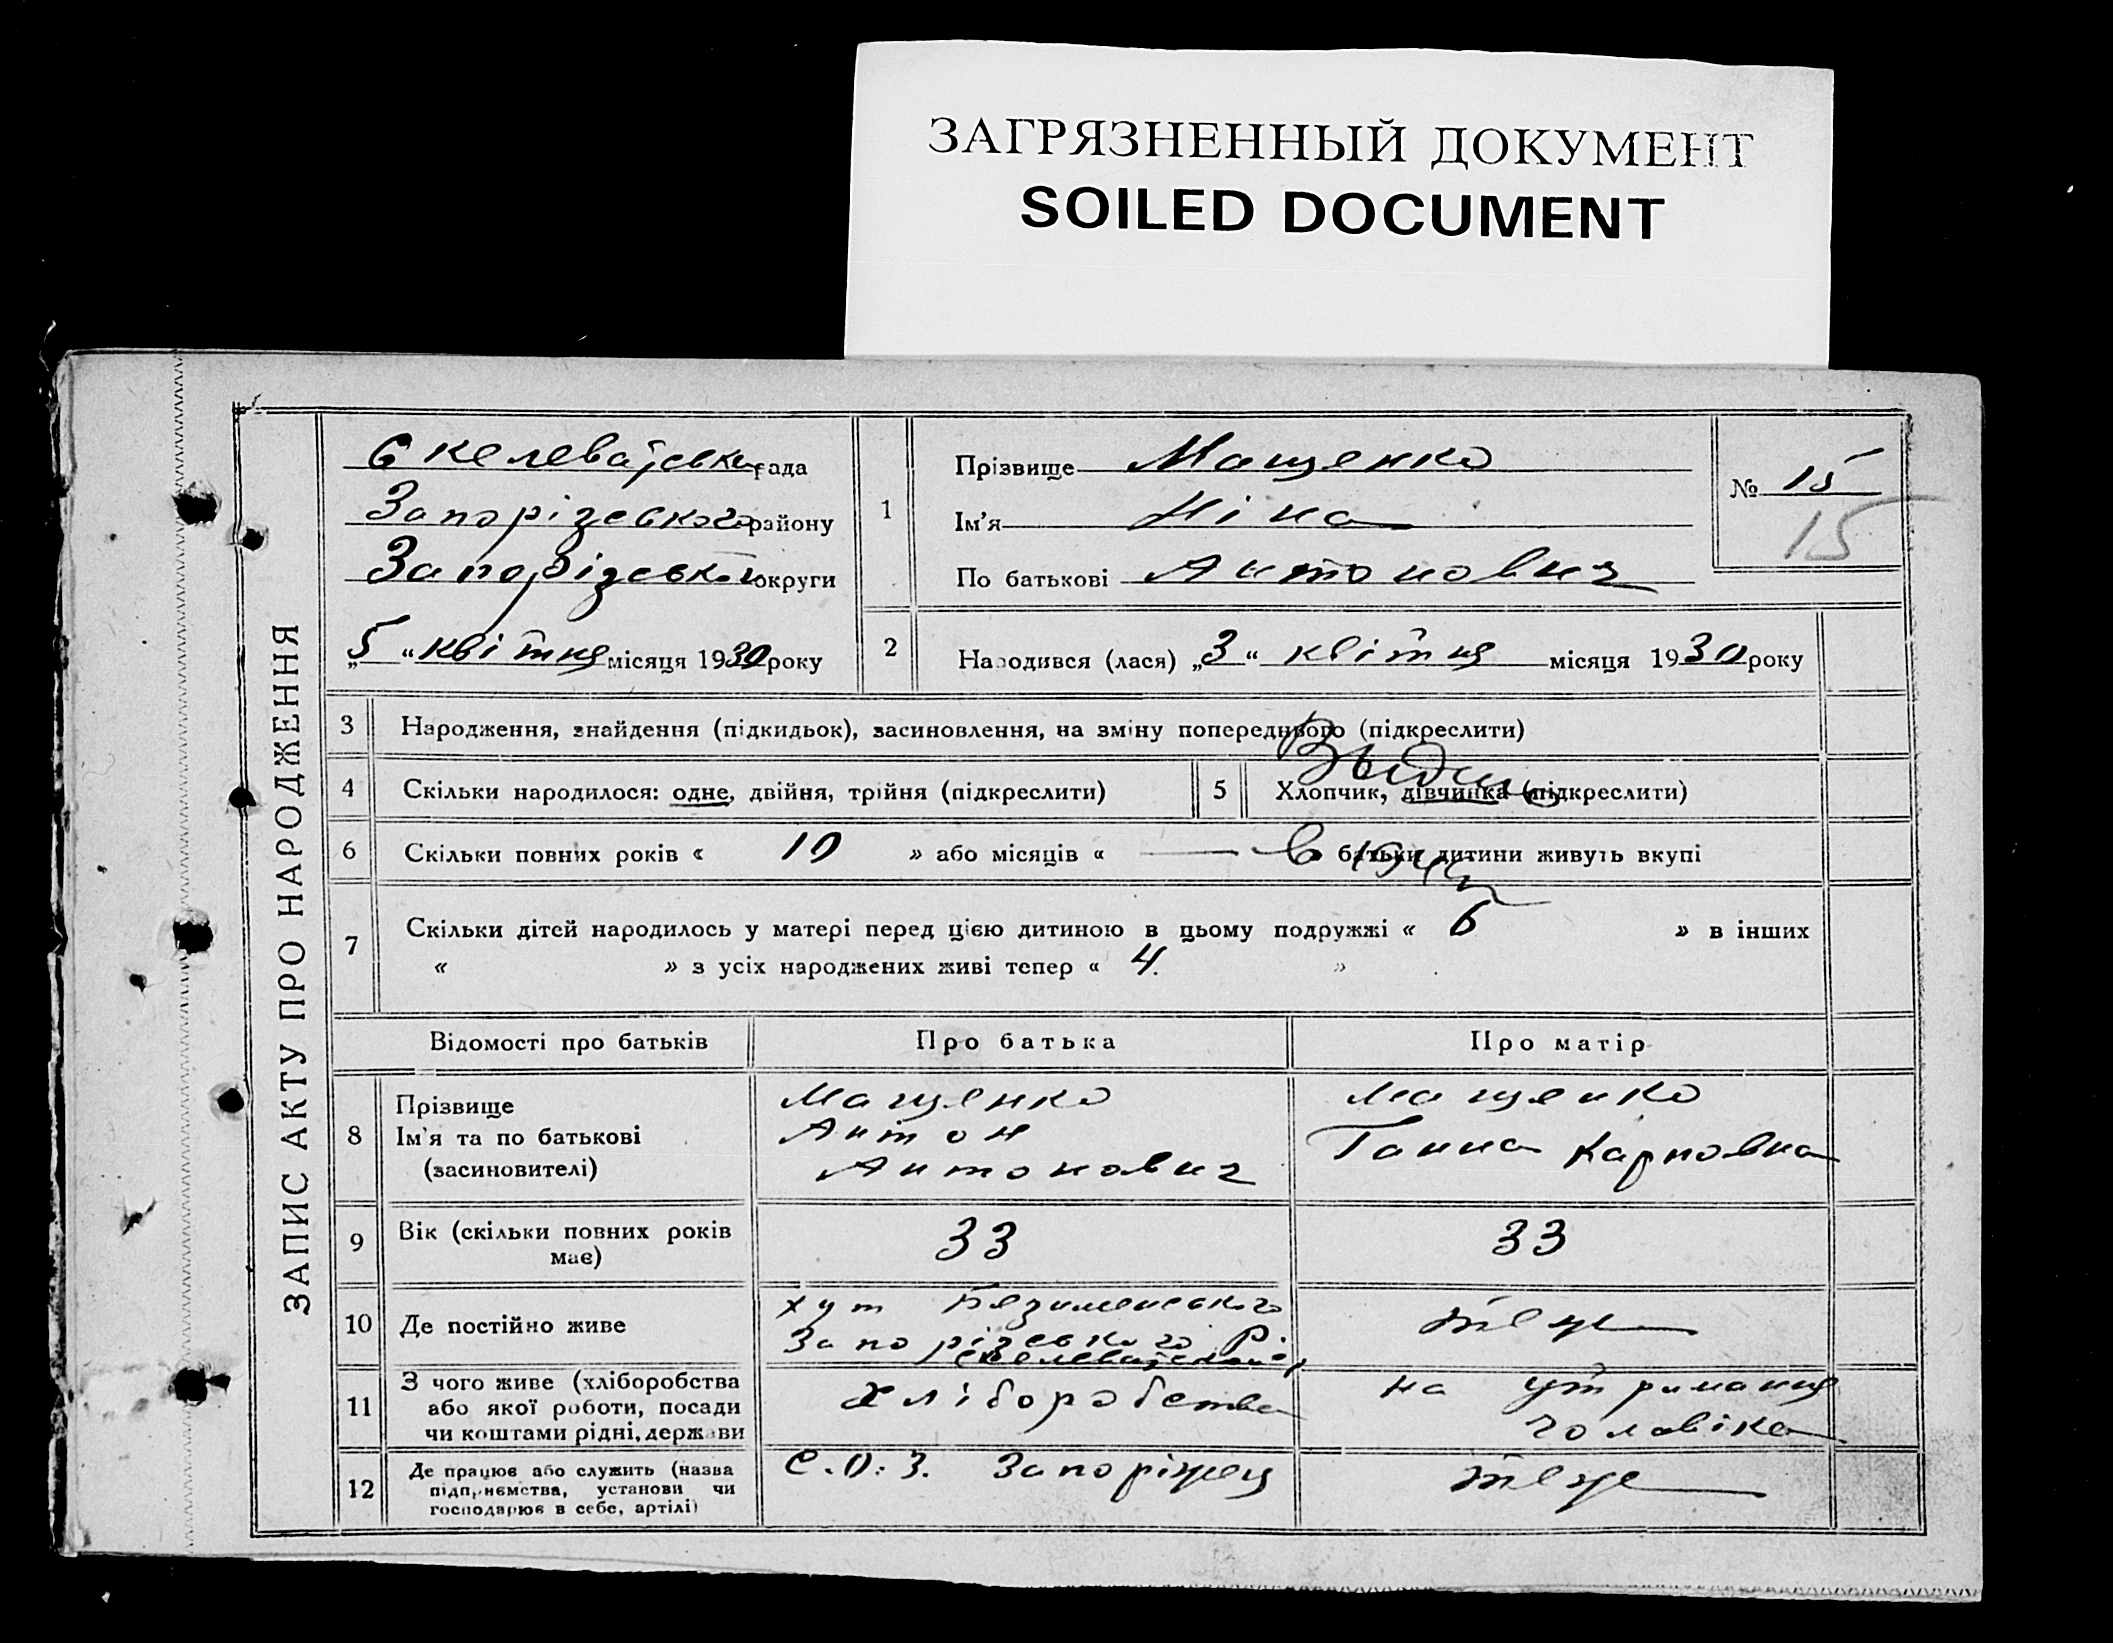 ЗАГРЯЗНЕННЫЙ ДОКУМЕНТ
SOILED DOCUMENT
ЗАПИС АКТУ ПРО НАРОДЖЕННЯ
рада
Запорізського району
Запорізського округи
„5“ квітня місяця 1930 року
1
Прізвище Мащенко
Ім’я Ніна
По батькові Антонович
№ 15
15
2
Народився (лася) „3“ квітня місяця 1930 року
3 Народження, знайдення (підкидьок), засиновлення, на зміну попереднього (підкреслити)
4 Скільки народилося: одне, двійня, трійня (підкреслити)
5 Хлопчик, дівчинка (підкреслити)
6 Скільки повних років « 10 » або місяців « — батьки дитини живуть вкупі
7 Скільки дітей народилось у матері перед цією дитиною в цьому подружжі « 6 » в інших
« » з усіх народжених живі тепер « 4. »
Відомості про батьків Про батька Про матір
8 Прізвище
Ім’я та по батькові
(засиновителі)
Мащенко
Антон
Антонович
Мащенко
Ганна Карповна
9 Вік (скільки повних років
має)
33
33
10 Де постійно живе
хут
Запорізського Р.
теж
11 З чого живе (хліборобства
або якої роботи, посади
чи коштами рідні, держави
хліборобства
на утримання
чоловіка
12 Де працює або служить (назва
підприємства, установи чи
господарює в себе, артілі)
С.О.З. Запоріжец
теж